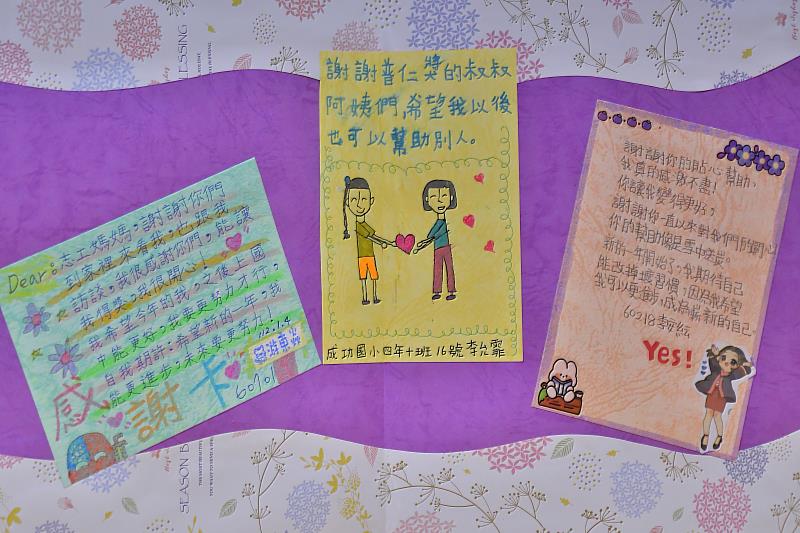 Dear:志工媽媽,謝謝你們
到家裡來看我,也跟我
訪談,我很感謝你們,能讓
我得獎,我很開心!
我希望今年的我,之後上國
中能更好,我要更努力才行,
自我期許:希望新的一年,我
能更進步,未來要更努力!
112.1.4
感謝卡
60101
謝謝普仁獎的叔叔
阿姨們,希望我以後
也可以幫助別人。
成功國小四年十班16號李允霏
謝謝你的貼心幫助,
我真的感激不盡!
你讓我變得更好,
謝謝你一直以來對我們的關心
你的幫助像是雪中送炭。
新的一年開始了,我期待自己
能改掉壞習慣,因為我希望
我可以更進步,成為嶄新的自己
60218
Yes!
BLESSING
SEASON B